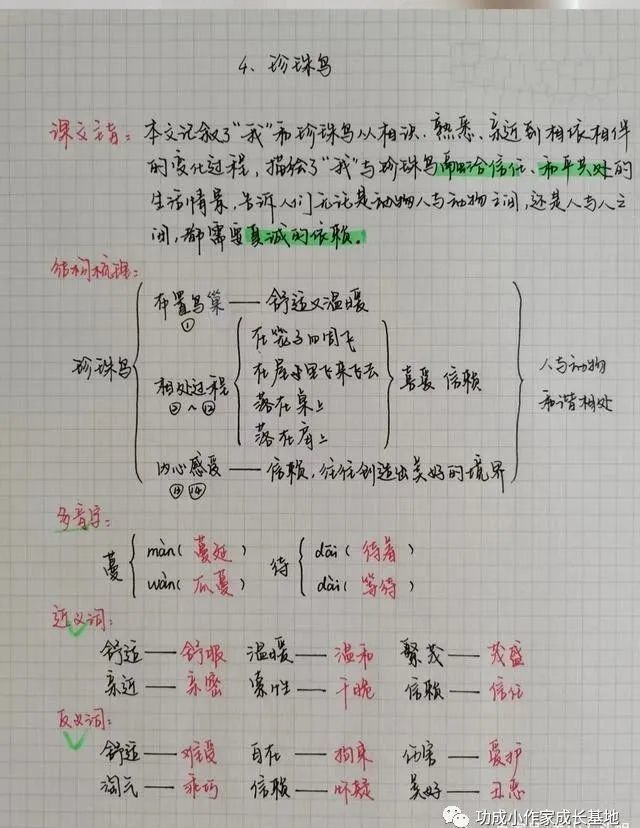 4、珍珠鸟
课文主旨：本文记叙了“我”和珍珠鸟从相识、熟悉、亲近到相依相伴
的变化过程，描绘了“我”与珍珠鸟融洽信任、和平共处的
生活情景，告诉人们无论是动物人与动物之间，还是人与人之
间，都需要真诚的依赖。
结构梳理：
珍珠鸟
布置鸟巢——舒适又温暖
①
相处过程
②~⑫
在笼子四周飞
在屋子里飞来飞去
落在桌上
落在肩上
喜爱 信赖
内心感受——信赖，往往创造出美好的境界
⑬⑭
人与动物
和谐相处
多音字：
蔓 màn（蔓延） 待 dāi（待着）
wàn（瓜蔓） dài（等待）
近义词：
舒适——舒服 温暖——温和 繁茂——茂盛
亲近——亲密 索性——干脆 信赖——信任
反义词：
舒适——难受 自在——拘束 伤害——爱护
淘气——乖巧 信赖——怀疑 美好——丑恶
功成小作家成长基地